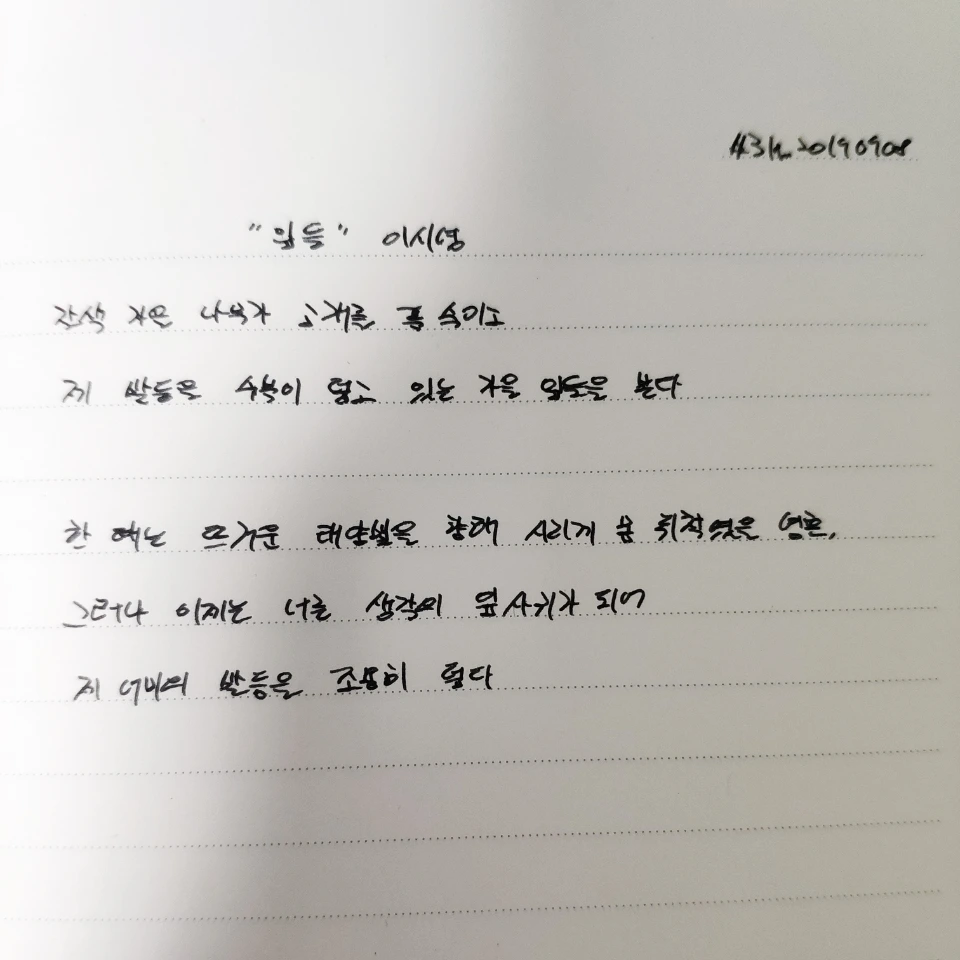 20190908
"잎들" 이시영
갈색 작은 나무가 고개를 폭 숙이고
제 발등을 수북이 덮고 있는 가을 잎들을 본다
한 때는 뜨거운 태양빛을 향해 시리게 눈 뒤척였을 영혼,
그러나 이제는 너른 생각의 잎사귀가 되어
지 어미의 발등을 조용히 덮다